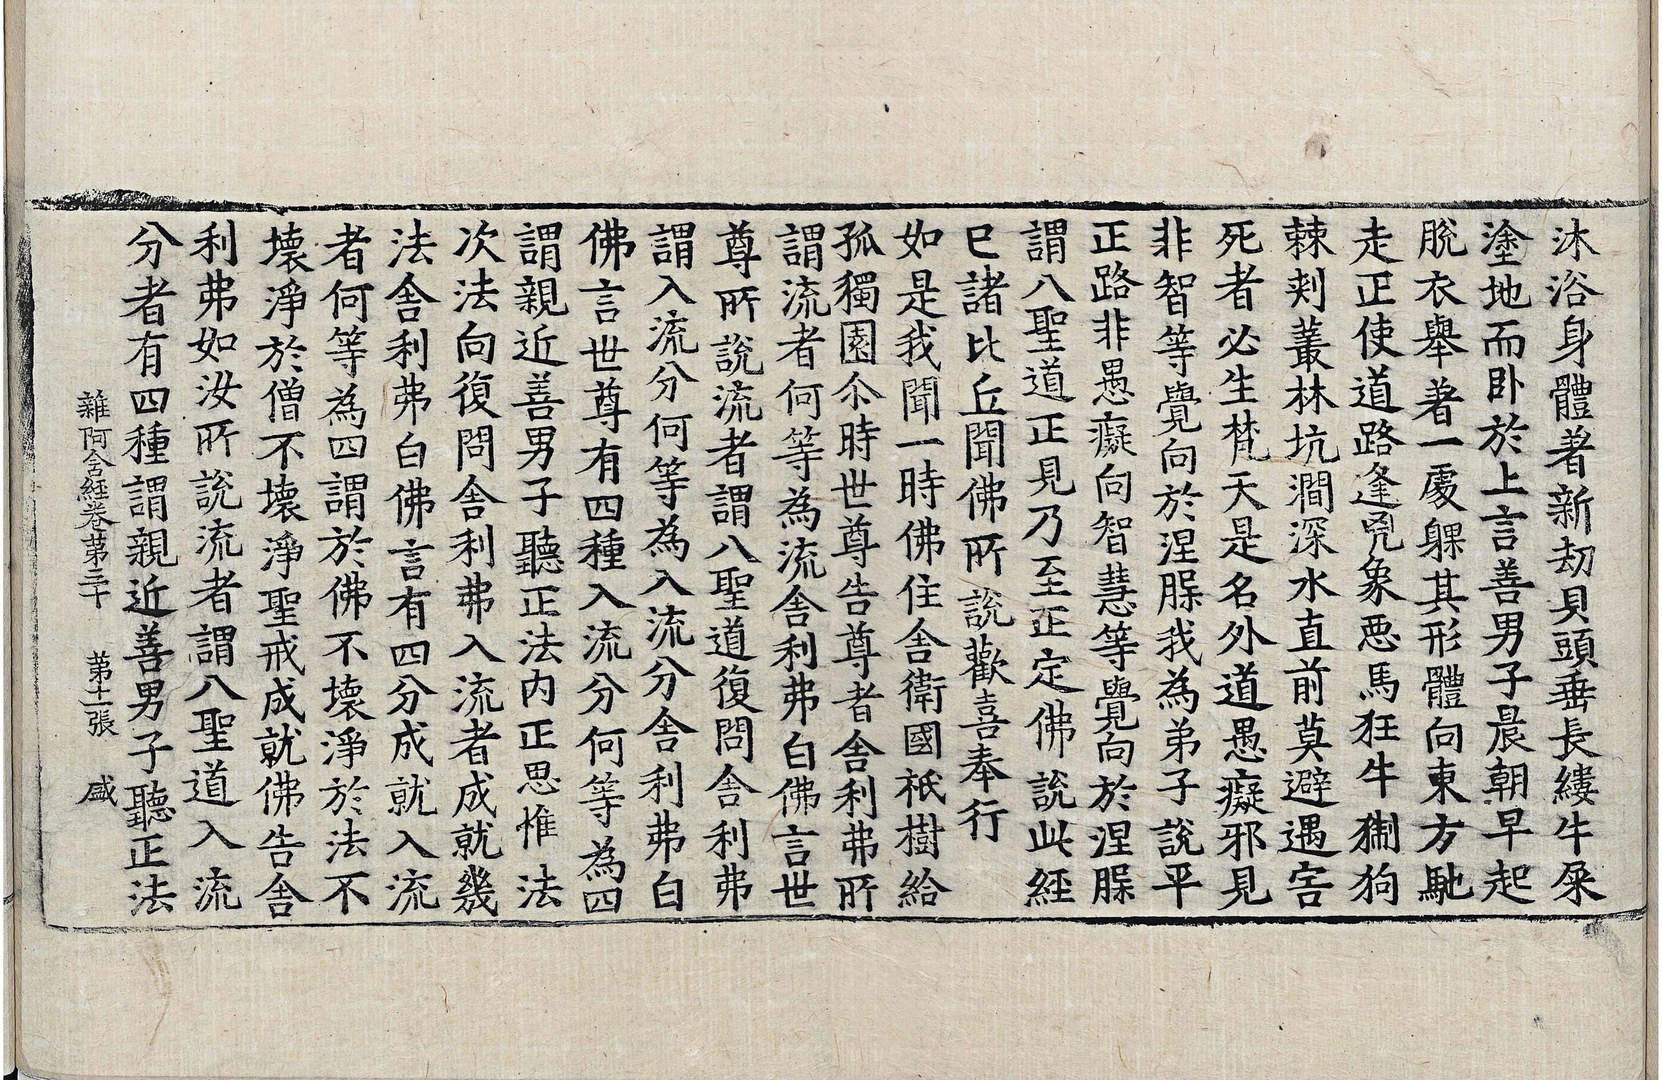 沐浴身體著新劫貝頭垂長縷牛屎
塗地而卧於上言善男子晨朝早起
脫衣舉著一處躶其形體向東方馳
走正使道路逢兇象惡馬狂牛猘狗
棘刾叢林坑澗深水直前莫避遇害
死者必生梵天是名外道愚癡邪見
非智等覺向於涅脲我為弟子說平
正路非愚癡向智慧等覺向於涅脲
謂八聖道正見乃至正定佛說此經
已諸比丘聞佛所說歡喜奉行
如是我聞一時佛住舍衛國祇樹給
孤獨園尒時世尊告尊者舍利弗所
謂流者何等為流舍利弗白佛言世
尊所說流者謂八聖道復問舍利弗
謂入流分何等為入流分舍利弗白
佛言世尊有四種入流分何等為四
謂親近善男子聽正法内正思惟法
次法向復問舍利弗入流者成就幾
法舍利弗白佛言有四分成就入流
者何等為四謂於佛不壞淨於法不
壞淨於僧不壞淨聖戒成就佛告舍
利弗如汝所說流者謂八聖道入流
分者有四種謂親近善男子聽正法
雜阿含經卷第三十 第十一張 盛